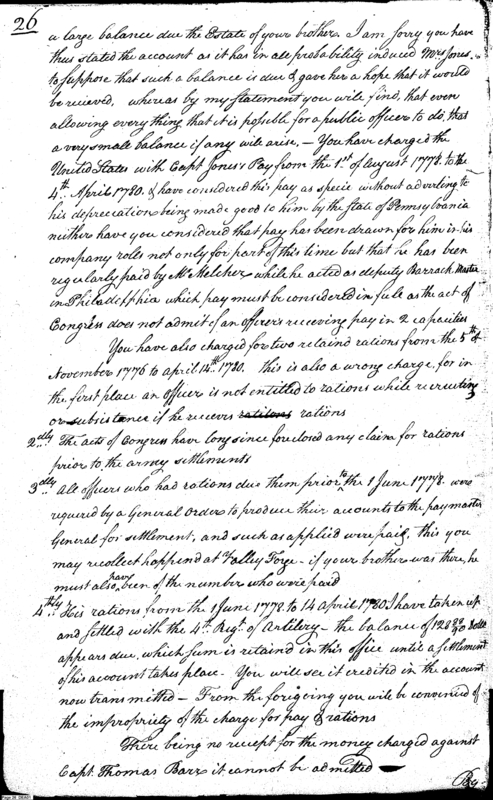 26
a large balance due the Estate of your brother I am sorry you have
thus stated the account as it has in all probability induced Mrs Jones
to suppose that such a balance is due & gave her a hope that it would
be recieved, whereas by my Statement you will find, that even
allowing every thing that it is possible for a public officer to do, that
a very small balance if any will arise, — You have charged the
United States with Capt Jones's Pay from the 1st of August 1778. to the
4th April 1780. & have considered this pay as specie without adverting to
his depreciation being made good to him by the State of Pennsylvania
neither have you considered that pay has been drawn for him in his
company roles not only for part of this time but that he has been
regularly paid by Mr Melcher while he acted as deputy Barrack Master
in Philadelphia which pay must be considered in full as the act of
Congress does not admit of an officers receiving pay in 2 capacities
You have also charged for two retaind rations from the 5th of
November 1776 to april 14th 1780. this is also a wrong charge, for in
the first place an officer is not entitled to rations while recruiting
or subsistance if he receves rations rations
2dly The acts of Congress have long since foreclosed any claim for rations
prior to the army settlements
3dly All officers who had rations due them prior to the 1 June 1778. were
required by a General Order to produce their accounts to the paymaster
General for settlement, and such as applied were paid, this you
may recollect happend at Valley Forge — if your brother was there, he
must also have been of the number who were paid
4thly His rations from the 1 June 1778. to 14 April 1780 I have taken up
and settled with the 4th Regt of Artilery — the balance of Dolls
appears due, which sum is retaind in this office until a settlement
of his account takes place. You will see it credited in the account
now transmitted — From the foregoing you will be convinced of
the impropriety of the charge for pay & rations
There being no receipt for the money charged against
Capt. Thomas Barr it cannot be admitted —
By